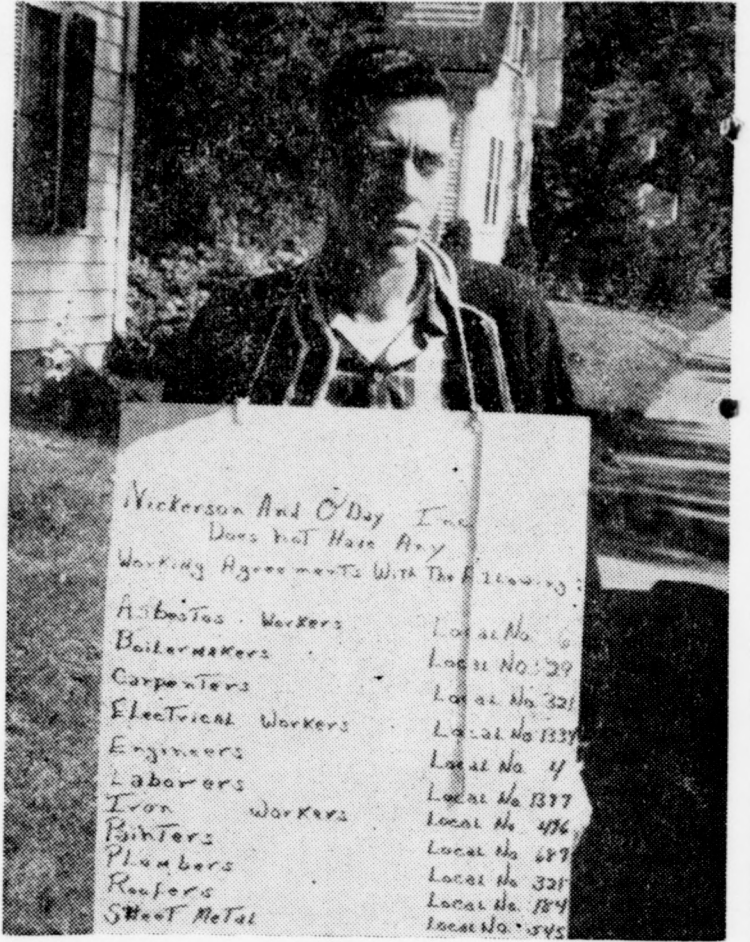 Nickerson And O'Day Inc
Does not Have Any
Working Agreements With The Following:
Asbestos Workers Local No. 6
Boilermakers Local No. 29
Carpenters Local No 321
Electrical Workers Local No
Engineers Local No 4
Laborers Local No 1377
Iron Workers Local No 496
Painters Local No
Plumbers Local No 321
Roofers Local No 184
Sheet Metal Local No. 545